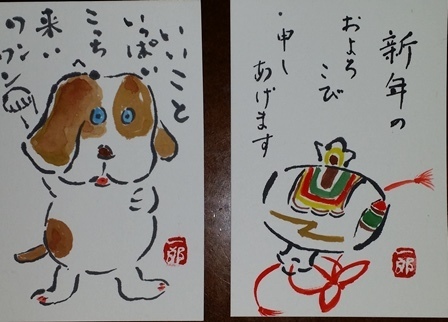 いいこと
いっぱい
こっちへ
来い
ワンワン
新年の
およろ
こび
・申し
あげます
一郎
一郎